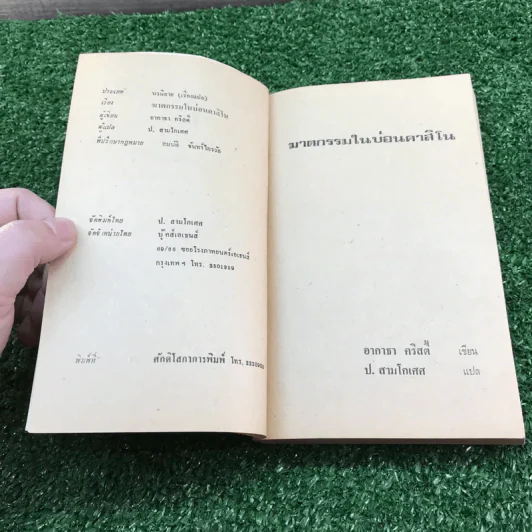 ประเภท นวนิยาย (เรื่องแปล)
เรื่อง ฆาตกรรมในบ่อนคาสิโน
ผู้เขียน อากาธา คริสตี้
ผู้แปล ป. สามโกเศศ
ที่ปรึกษากฎหมาย สมบัติ จันทร์วิอรนัย
จัดพิมพ์โดย ป. สามโกเศศ
จัดจำหน่ายโดย บุ๊คส์เอเธนส์
ซอยโรงภาพยนตร์เอเธนส์
กรุงเทพ ฯ โทร.
พิมพ์ที่ ศักดิ์โสภาการพิมพ์ โทร.
ฆาตกรรมในบ่อนคาสิโน
อากาธา คริสตี้ เขียน
ป. สามโกเศศ แปล